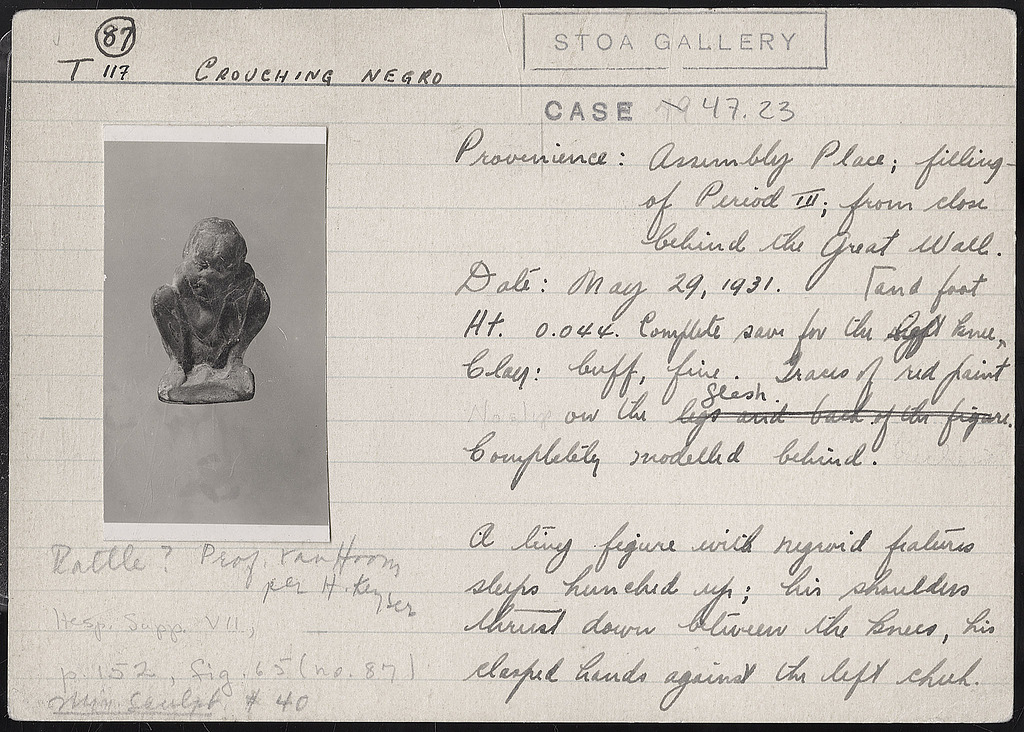 87
T 117 CROUCHING NEGRO
STOA GALLERY
CASE 47.23
Provenience: Assembly Place; filling
of Period III; from close
behind the Great Wall.
Date: May 29, 1931. [and foot
Ht. 0.044. Complete save for the left knee,
Clay: buff, fine. Traces of red paint
flesh.
on the legs and back of the figure.
Completely modelled behind.
A tiny figure with negroid features
sleeps hunched up; his shoulders
thrust down between the knees, his
clasped hands against the left cheek.
Rattle? Prof. Van Hoorn
per H. Keyser
Hesp. Supp. VII,
p. 152, fig. 65 (no. 87)
Min. Sculpt. # 40